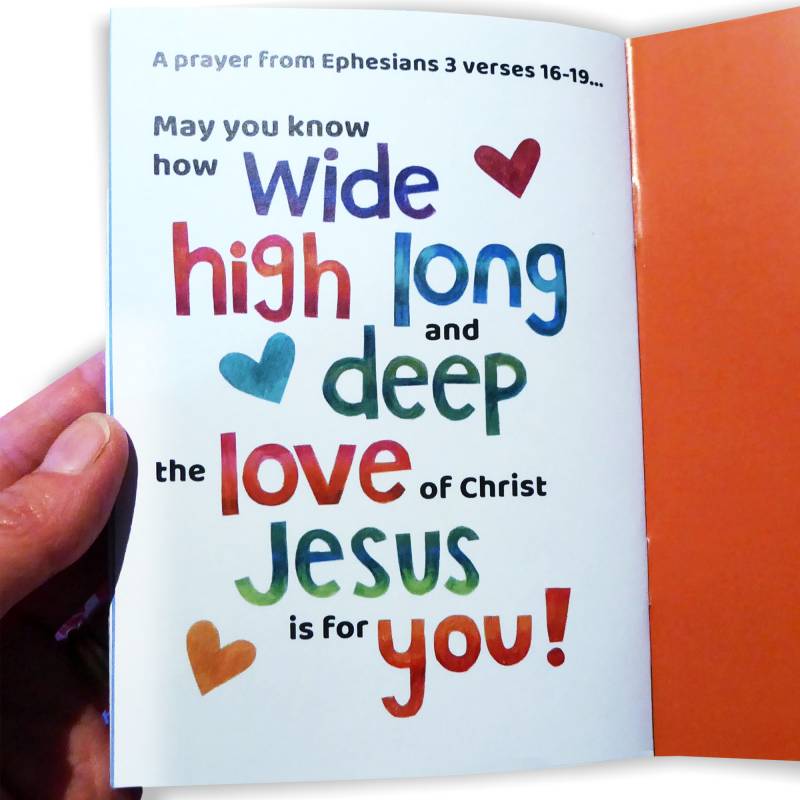 A prayer from Ephesians 3 verses 16-19...
May you know
how wide
high long
and
deep
the love of Christ
Jesus
is for you!